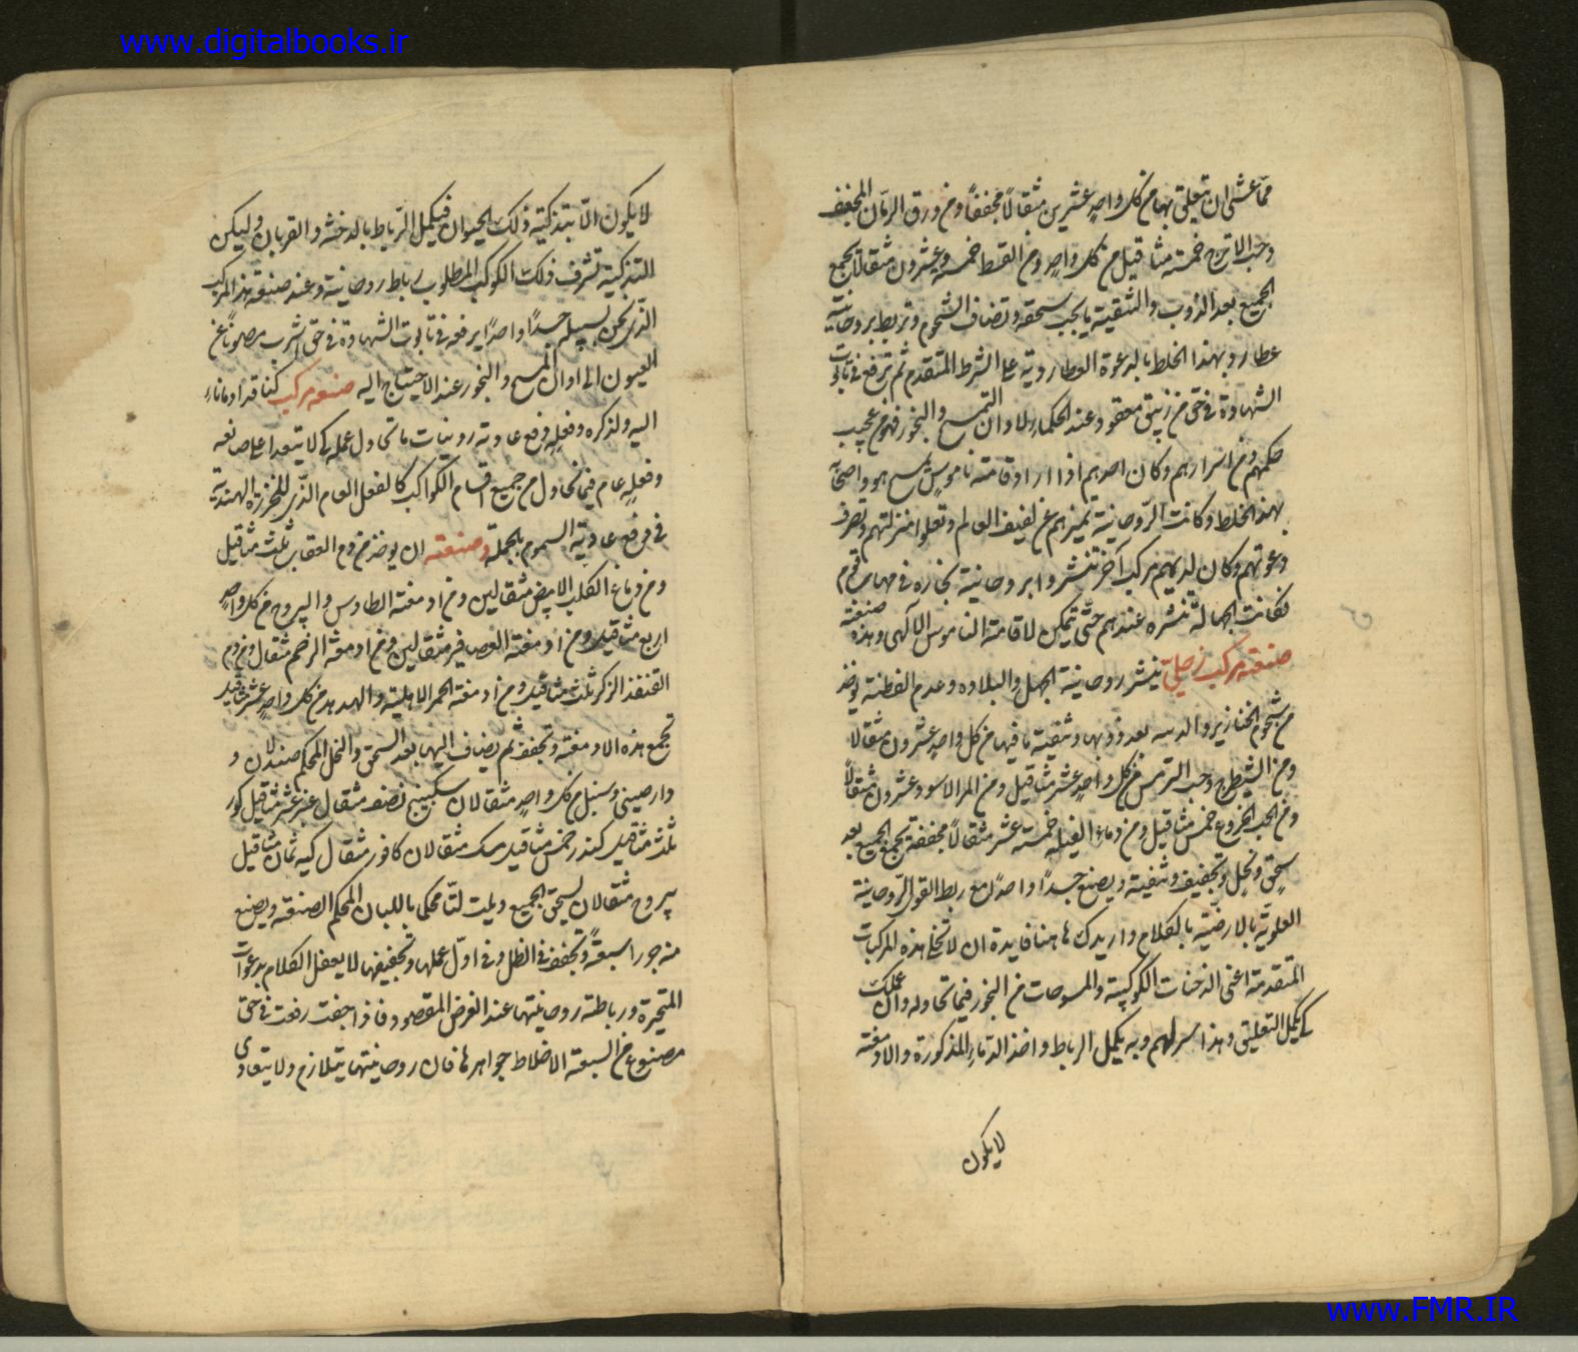 www.digitalbooks.ir
مما عشى ان تعلق بها من كل واحد عشرين مثقالاً مجففاً ومن ورق الرمان المجفف
وحب الاترج خمسة مثاقيل من كل واحد ومن القسط خمسة وعشرون مثقالان يجمع
الجميع بعد الذوب والتنقية ما يجب سحقه وتضاف الشحوم وتربط بروحانية
عطارد بهذا الخلط بالدعوة العطاردية على الشرط المتقدم ثم ترفع في تابوت
الشهادة في حق من زيبق معقود عند الحكماء لاوان التمسح والبخور فهو من عجيب
حكمهم ومن اسرارهم وكان احدهم اذا اراد اقامة ناموس تمسح هو واصحابه
بهذا الخلط وكانت الروحانية تميزهم عن لفيف العالم وتعلوا منزلتهم وتصرف
دعوتهم وكان لديهم مركب آخر تنشروا بروحانية بخاره في مهامات قوم
فكانت الجهالة منتشره عندهم حتى تمكن لاقامة الناموس الالهى وهذه صنعته
صنعة مركب زحلى ينشر روحانية الجهل والبلاده وعدم الفطنة يوخذ
من شحوم الخنازير والدببه بعد ذوبها وتنقية ما فيها من كل واحد عشرون مثقالا
ومن الشيطرج وحب الترمس من كل واحد عشر مثاقيل ومن المر الاسود عشرون مثقالاً
ومن الحب الخروع خمس مثاقيل ومن دماء الفيله خمسة عشر مثقالاً مجففة يجمع الجميع بعد
سحق ونخل وتجفيف وتنقية ويصنع جسداً واحداً مع ربط القوى الروحانية
العلوية بالارضية بالكلام واريدك هاهنا فايدة ان لا تخل هذه المركبات
المتقدمة اعنى الدخنات الكوكبية والمسوحات من البخور فيما تحاوله وان عملك
كى يكمل التعليق وهذا سر لهم وبه يكمل الرباط واخذ الدماء المذكورة والادمغة
لا يكون
لا يكون الا بتذكية ذلك الحيوان فيكمل الرباط بالدخنة والقربان وليكن
التذكية تشرف ذلك الكوكب المطلوب رباط روحانية وعند صنعة هذا المركب
الذى نحن بسبيله جسداً واحداً يرفعه في تابوت الشهادة في حق اشرب مصوناً عن
العيون الى اوان المسح والبخور عند الاحتياج اليه صنعه مركب كنا قد اومانا
اليه ولذكره وفعله دفع عادية روبيات ما تحاول عمله كى لا يتعدا على صانعه
وفعله عام فيما تحاول من جميع اقسام الكواكب كالفعل العام الذى للخرزة الهندية
في دفع عادية السموم بالجملة وصنعته ان يوخذ من دم العقاب ثلث مثاقيل
ومن دماغ الكلب الابيض مثقالين ومن ادمغة الطاوس واليبروح من كل واحد
اربع مثاقيل ومن ادمغة العصافير مثقالين ومن ادمغة الرخم مثقال ومن دم
القنفذ الذكر ثلث مثاقيل ومن ادمغة الحمر الاهلية والهدهد من كل واحد عشر مثاقيل
تجمع هذه الادمغة وتجفف ثم يضاف اليها بعد السحق والنخل المحكم صندلان و
دارصينى وسنبل من كل واحد مثقالان سكبينج نصف مثقال عنبر عشر مثاقيل كور
ثلث مثاقيل كندر خمس مثاقيل مسك مثقالان كافور مثقال كيه ثمان مثاقيل
يبروح مثقالان يسحق الجميع ويلت لتّا محكما باللبان المحكم الصنعة ويصنع
منه جوراسبعةً وتجفف في الظل وفى اول عملها وتجفيفها لا يعفل الكلام بدعوات
المتحيرة ورباطه روحانيتها عند الغرض المقصود فاذا جفت رفعت في حق
مصنوع من السبعة الاخلاط جواهرها فان روحانيتها يتلازم ولا يتعادى
www.FMR.IR